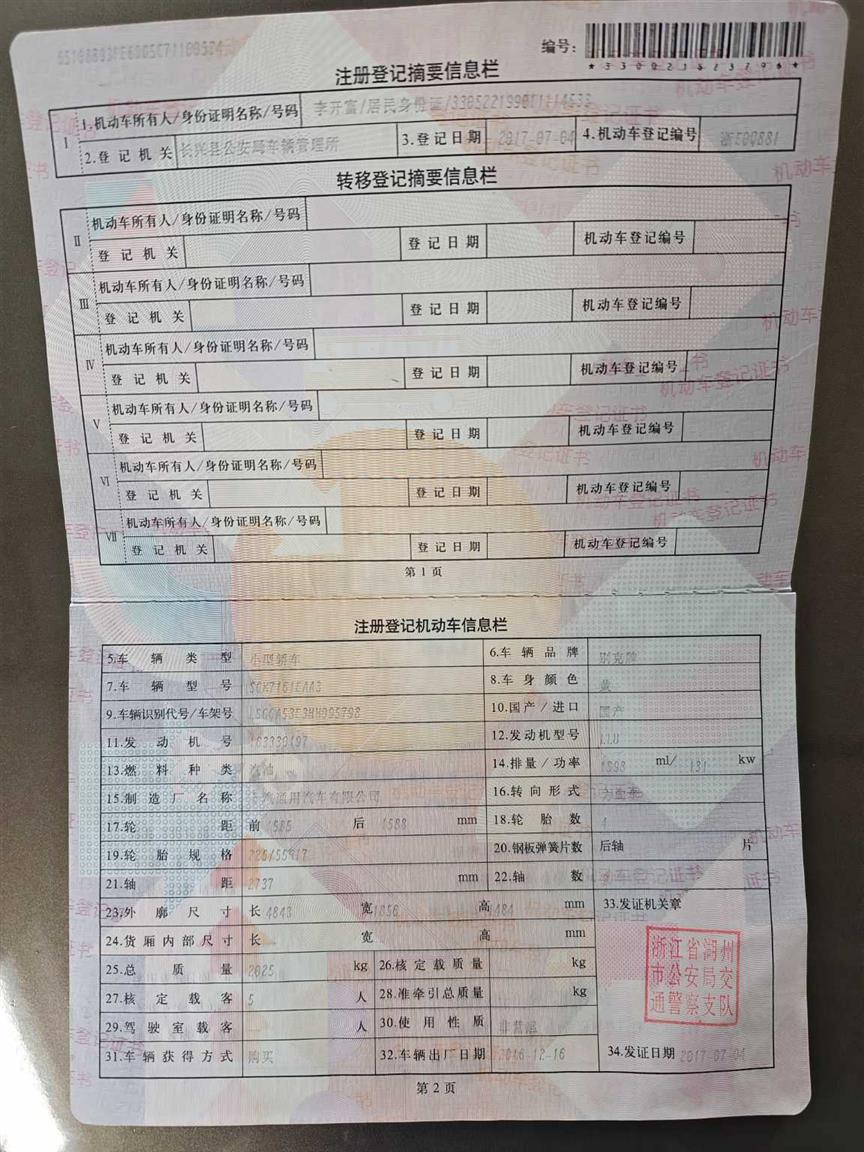 编号:
注册登记摘要信息栏
Ⅰ 1.机动车所有人/身份证明名称/号码 李开富/居民身份证/
2.登记机关 长兴县公安局车辆管理所 3.登记日期 2017-07-04 4.机动车登记编号
转移登记摘要信息栏
Ⅱ 机动车所有人/身份证明名称/号码
登记机关 登记日期 机动车登记编号
Ⅲ 机动车所有人/身份证明名称/号码
登记机关 登记日期 机动车登记编号
Ⅳ 机动车所有人/身份证明名称/号码
登记机关 登记日期 机动车登记编号
Ⅴ 机动车所有人/身份证明名称/号码
登记机关 登记日期 机动车登记编号
Ⅵ 机动车所有人/身份证明名称/号码
登记机关 登记日期 机动车登记编号
Ⅶ 机动车所有人/身份证明名称/号码
登记机关 登记日期 机动车登记编号
第1页
注册登记机动车信息栏
5.车辆类型 小型轿车 6.车辆品牌 别克牌
7.车辆型号 8.车身颜色 黄
9.车辆识别代号/车架号 10.国产/进口 国产
11.发动机号 12.发动机型号
13.燃料种类 汽油 14.排量/功率 ml/ kw
15.制造厂名称 上汽通用汽车有限公司 16.转向形式
17.轮距 前 1585 后 1588 mm 18.轮胎数 4
19.轮胎规格 225/55R17 20.钢板弹簧片数 后轴 片
21.轴距 2737 mm 22.轴数
23.外廓尺寸 长 4843 宽 1856 高 1484 mm 33.发证机关章
24.货厢内部尺寸 长 宽 高 mm
浙江省湖州
市公安局交
通警察支队
25.总质量 2025 kg 26.核定载质量 kg
27.核定载客 5 人 28.准牵引总质量 kg
29.驾驶室载客 人 30.使用性质 非营运
31.车辆获得方式 购买 32.车辆出厂日期 2016-12-16 34.发证日期 2017-07-04
第2页